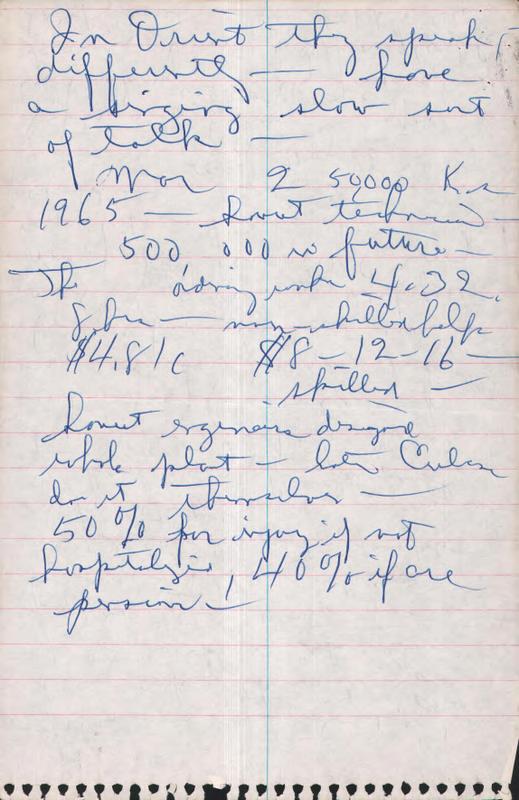 In Orient they speak
differently — have
a singing slow sort
of talk —
Mar 2 50,000 K
1965 — Soviet technical —
500 000 in future —
The ordinary worker 4.32,
8 hrs — non-skilled help
$4.81c $8-12-16 —
skilled —
Soviet engineers designed
whole plant — later Cubans
do it themselves —
50% for injury if not
hospitalized, 40% if are
pension —